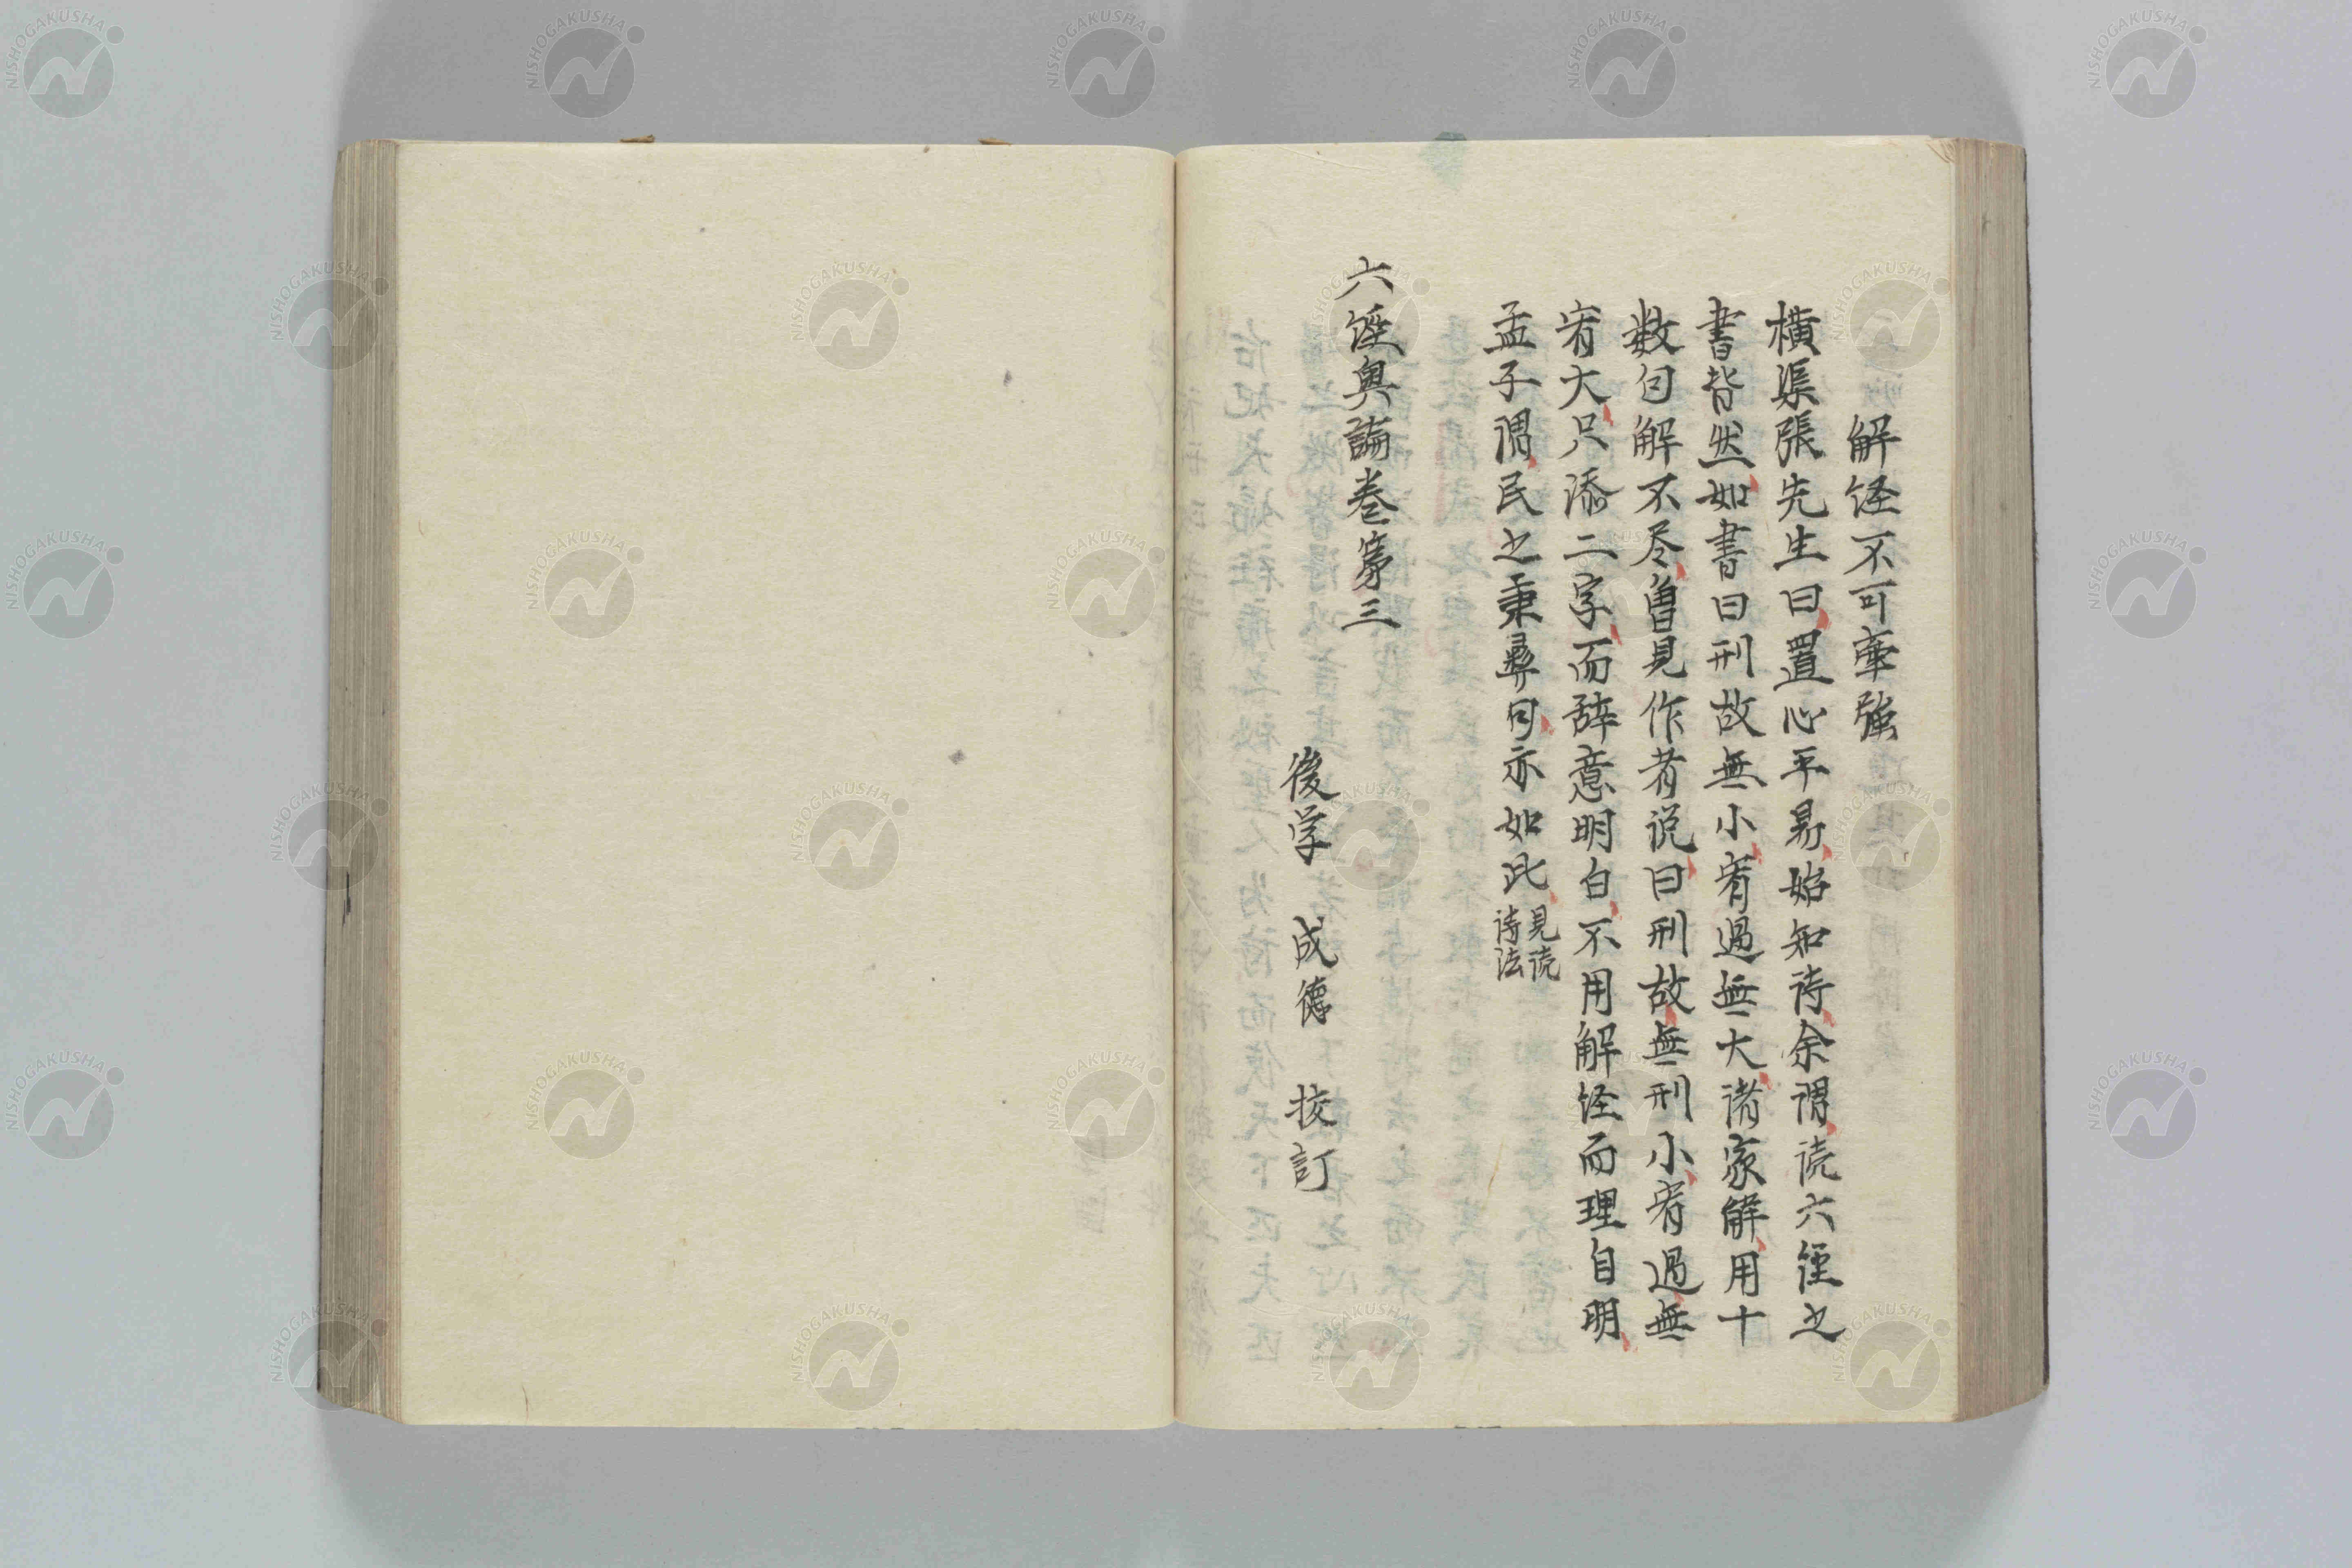 解経不可牽強
横渠張先生曰置心平易始知诗余谓读六経之
書皆然如書曰刑故無小宥過無大诸家解用十
数句解不尽曽見作者说曰刑故無刑小宥過無
宥大只添二字而辞意明白不用解経而理自明
孟子谓民之秉彞句亦如此見读诗法
六経奥論巻第三
後学 成德 挍訂
NISHOGAKUSHA